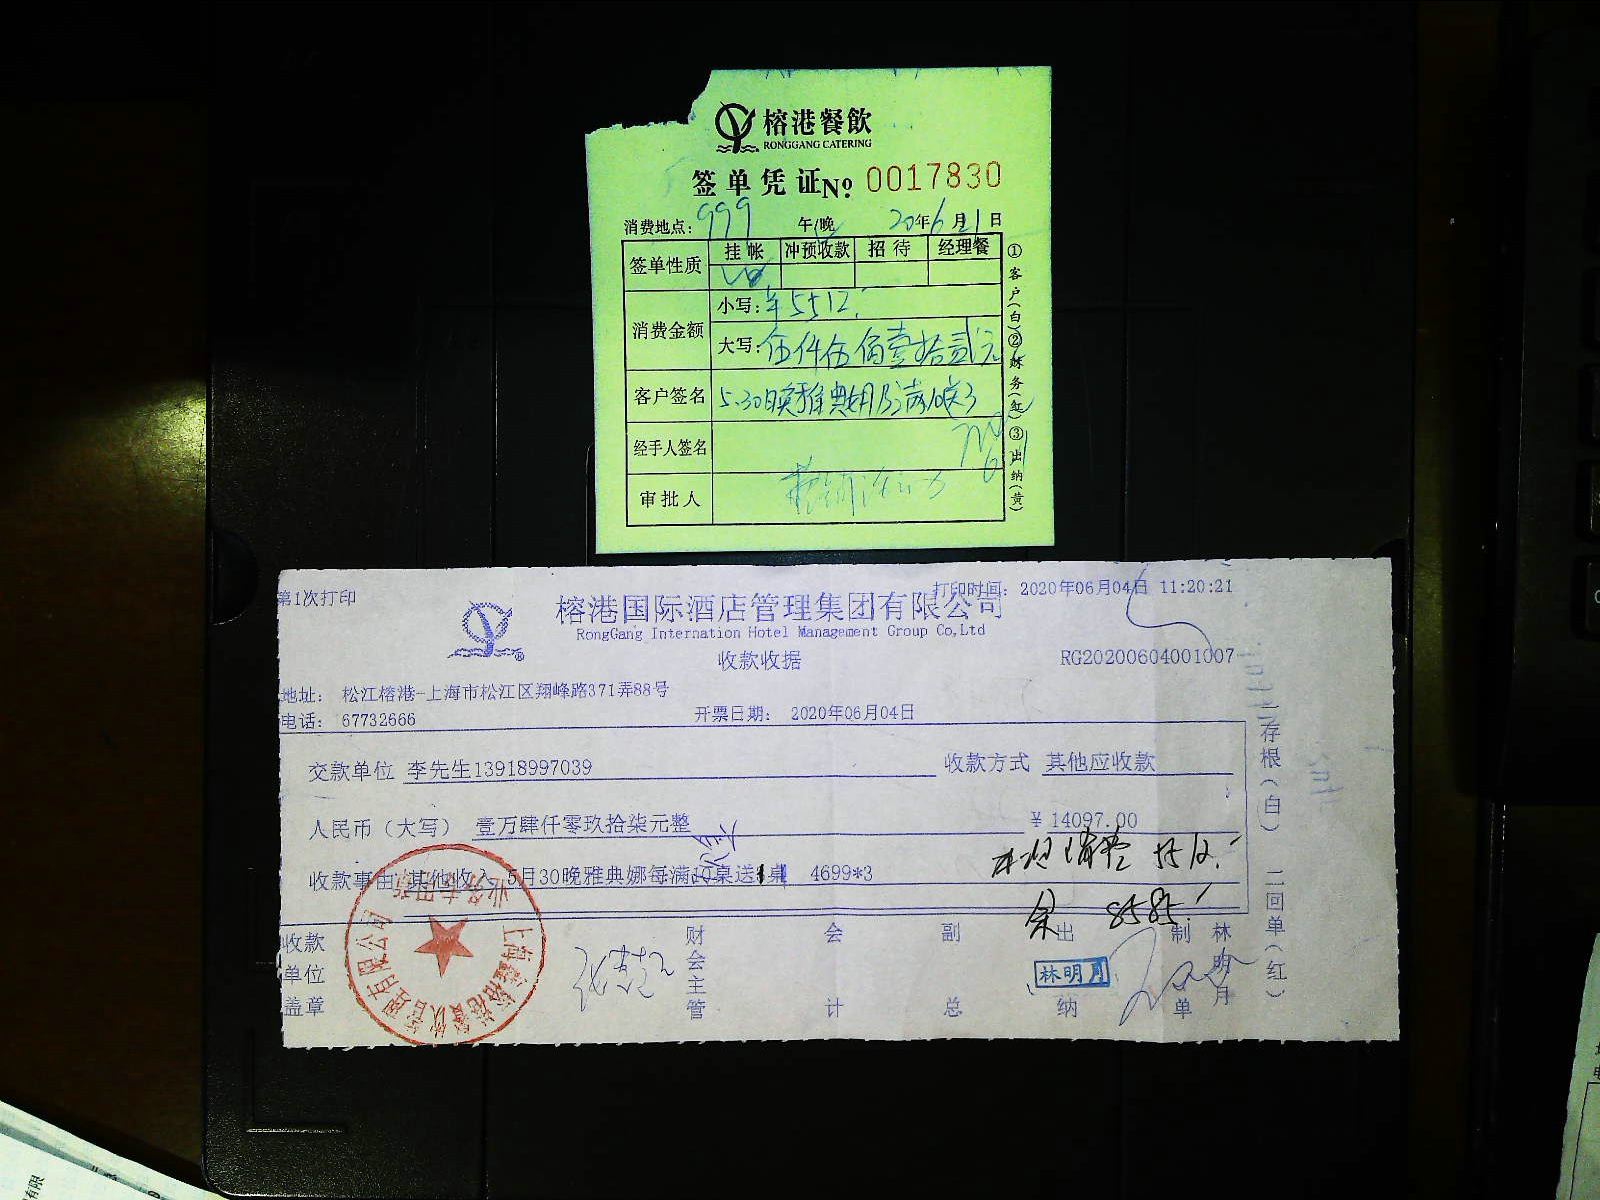 榕港餐飲
RONGGANG CATERING
签单凭证№ 0017830
消费地点: 999 午/晚 20年6月1日
签单性质 挂帐 冲预收款 招待 经理餐
消费金额 小写: ¥5512.
大写: 伍仟伍佰壹拾贰元
客户签名 5.30晚雅典娜
经手人签名
审批人
①客户(白)②财务(红)③出纳(黄)
第1次打印 打印时间: 2020年06月04日 11:20:21
榕港国际酒店管理集团有限公司
RongGang Internation Hotel Management Group Co,Ltd
收款收据 RG20200604001007
地址: 松江榕港-上海市松江区翔峰路371弄88号
电话: 67732666 开票日期: 2020年06月04日
交款单位 李先生13918997039 收款方式 其他应收款
人民币(大写) 壹万肆仟零玖拾柒元整 ¥14097.00
收款事由: 其他收入 5月30晚雅典娜每满10桌送1桌 4699*3
消费 5512.
余 8585.
收款单位盖章 财会主管 会计 副总 出纳 林明月 制单 林明月
一存根(白) 二回单(红)
业务专用章